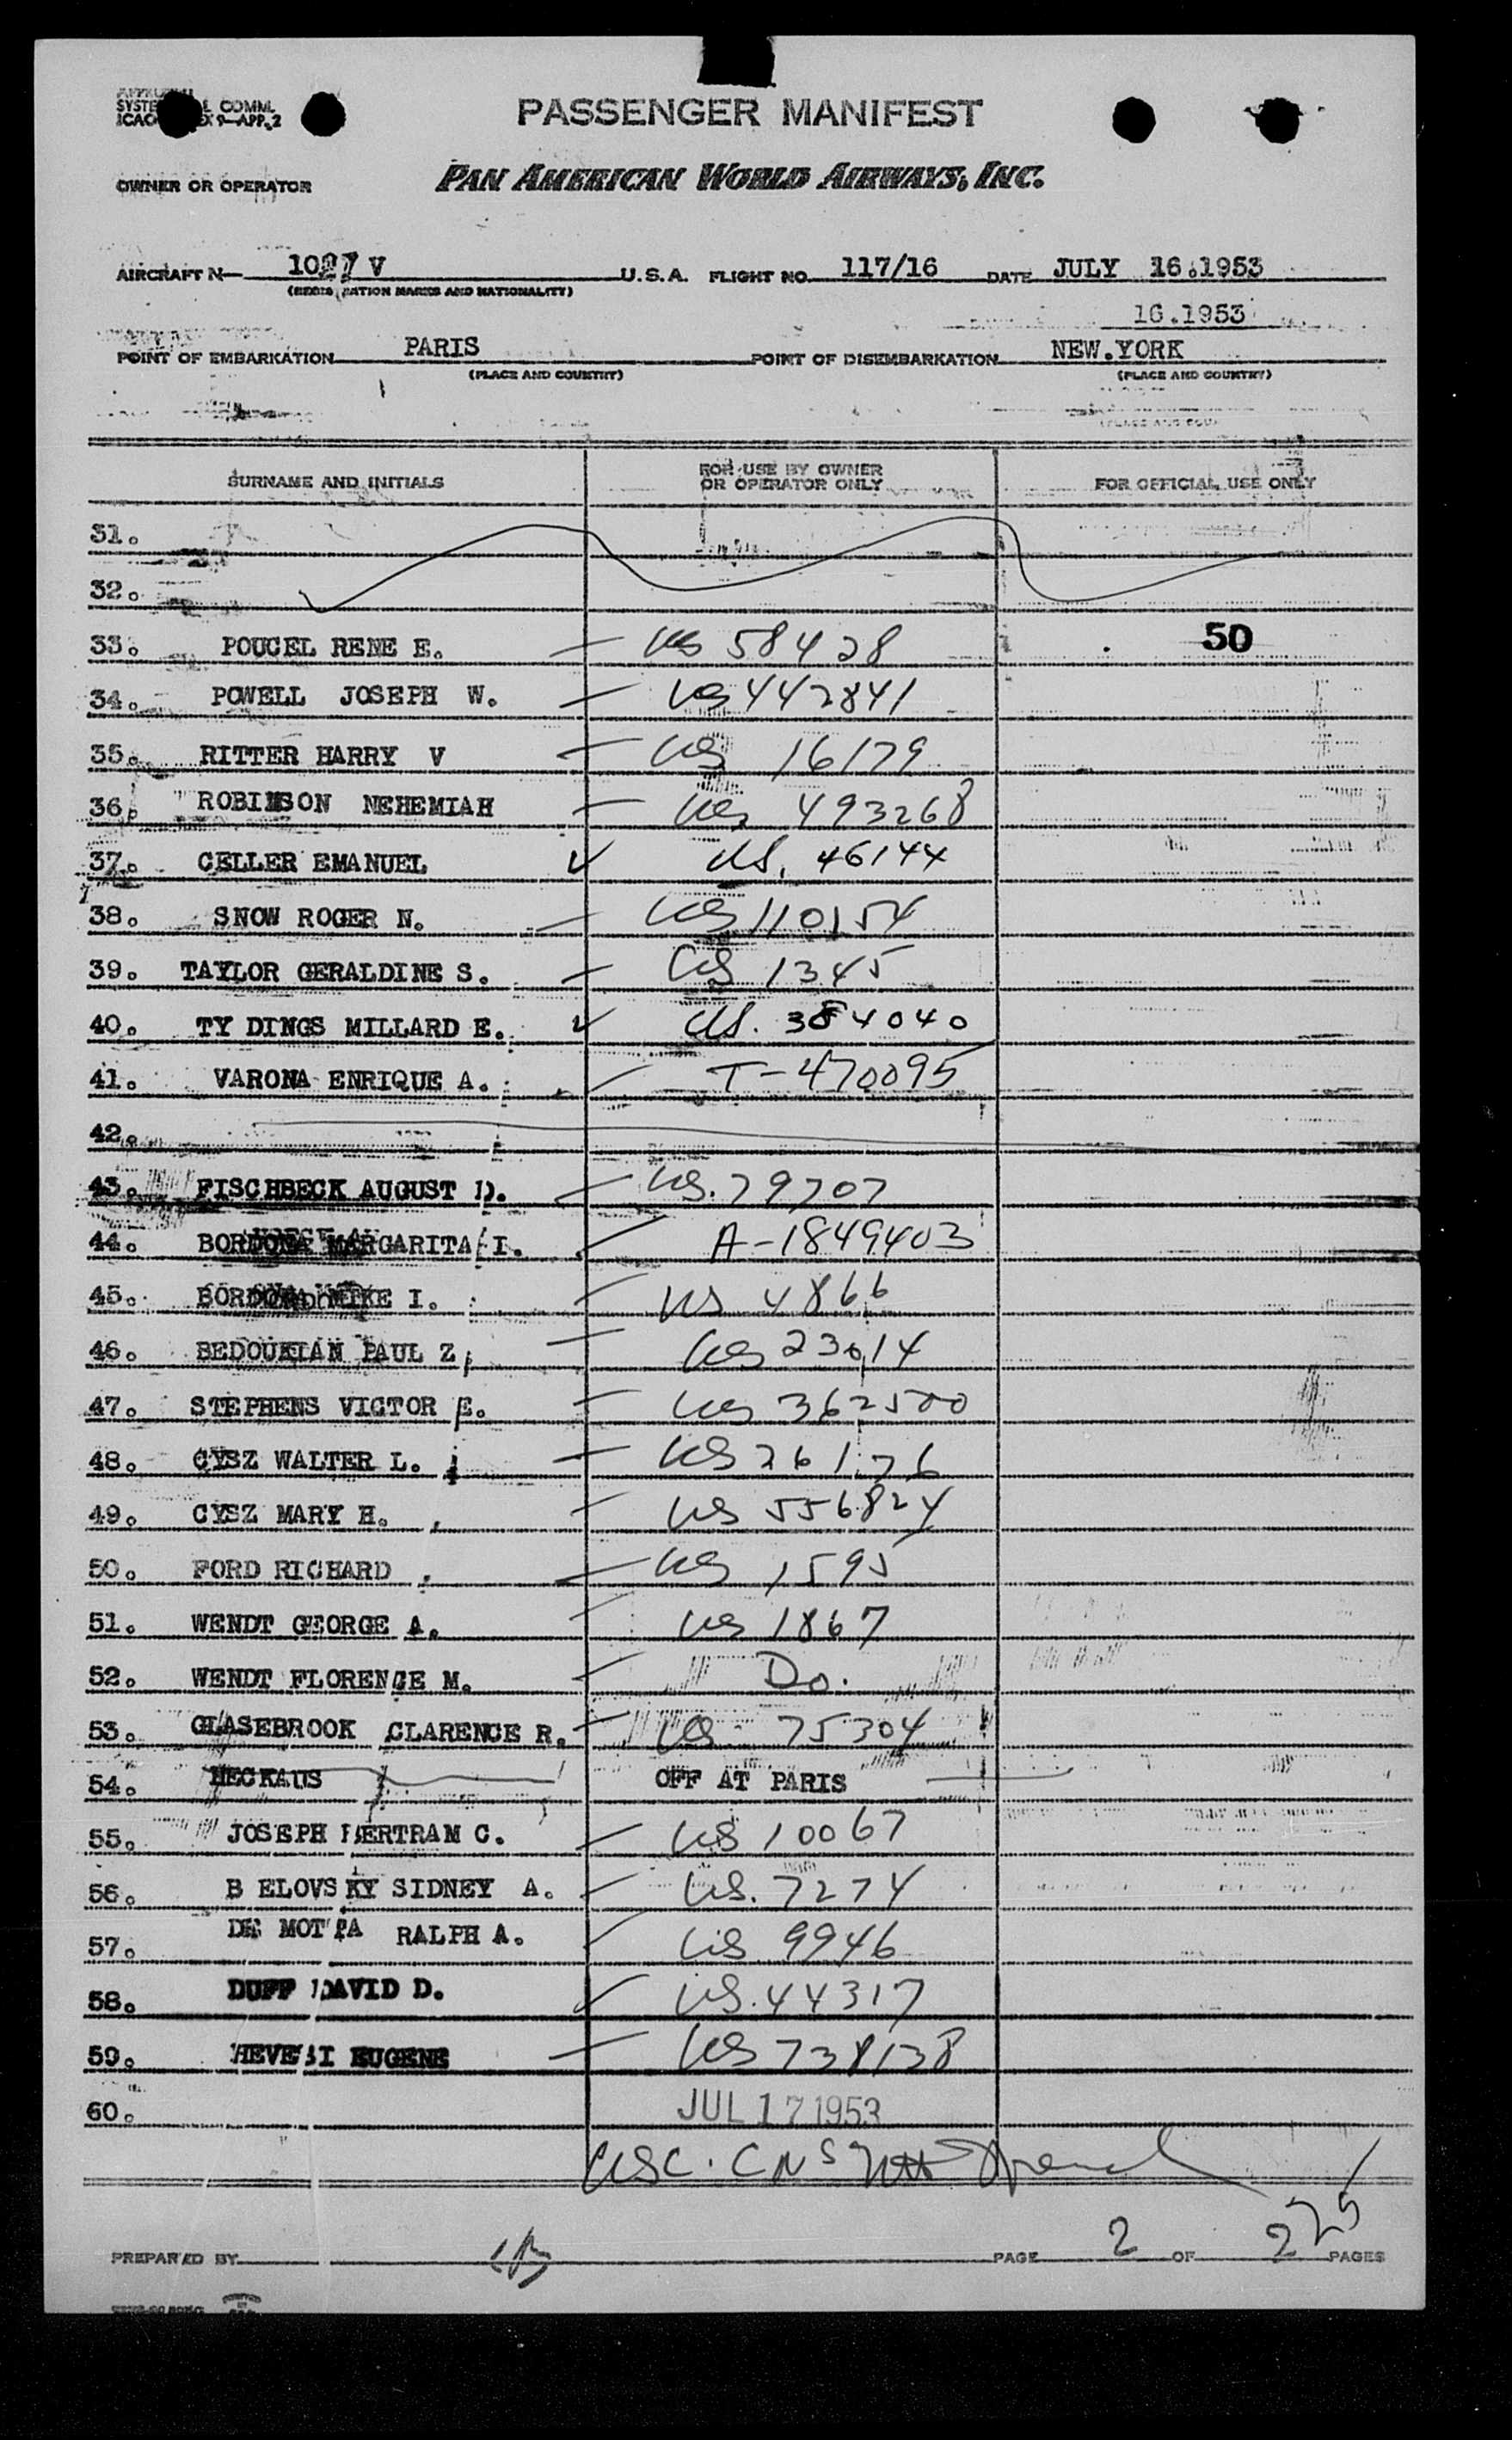 SYSTE L COMM.
ICAO EX 9—APP. 2
PASSENGER MANIFEST
OWNER OR OPERATOR PAN AMERICAN WORLD AIRWAYS, INC.
AIRCRAFT N— 1027 V U.S.A. FLIGHT NO. 117/16 DATE JULY 16.1953
16.1953
POINT OF EMBARKATION PARIS POINT OF DISEMBARKATION NEW.YORK
(PLACE AND COUNTRY) (PLACE AND COUNTRY)
SURNAME AND INITIALS FOR USE BY OWNER OR OPERATOR ONLY FOR OFFICIAL USE ONLY
31.
32.
33. POUCEL RENE E. — US 58428 50
34. POWELL JOSEPH W. — US 442841
35. RITTER HARRY V — US 16179
36. ROBINSON NEHEMIAH — US 493268
37. CELLER EMANUEL ✓ US. 46144
38. SNOW ROGER N. — US 110154
39. TAYLOR GERALDINE S. — US 1345
40. TY DINGS MILLARD E. ✓ US. 384040
41. VARONA ENRIQUE A. T-470095
42.
43. FISCHBECK AUGUST D. — US. 79707
44. BORDONA MARGARITA I. A-1849403
45. BORDONA MIKE I. — US 4866
46. BEDOUKIAN PAUL Z. — US 23014
47. STEPHENS VICTOR E. — US 362500
48. CYSZ WALTER L. — US 26176
49. CYSZ MARY H. — US 556824
50. FORD RICHARD — US 1595
51. WENDT GEORGE A. — US 1867
52. WENDT FLORENCE M. — Do.
53. GLASEBROOK CLARENCE R. — US 75304
54. HECKAUS OFF AT PARIS
55. JOSEPH BERTRAM C. — US 10067
56. B ELOVS KY SIDNEY A. — US. 7274
57. DE MOTTA RALPH A. US 9946
58. DUFF DAVID D. ✓ US. 44317
59. HEVESI EUGENE — US 738138
60. JUL 17 1953
USC.
PREPARED BY PAGE 2 OF 2 PAGES
225